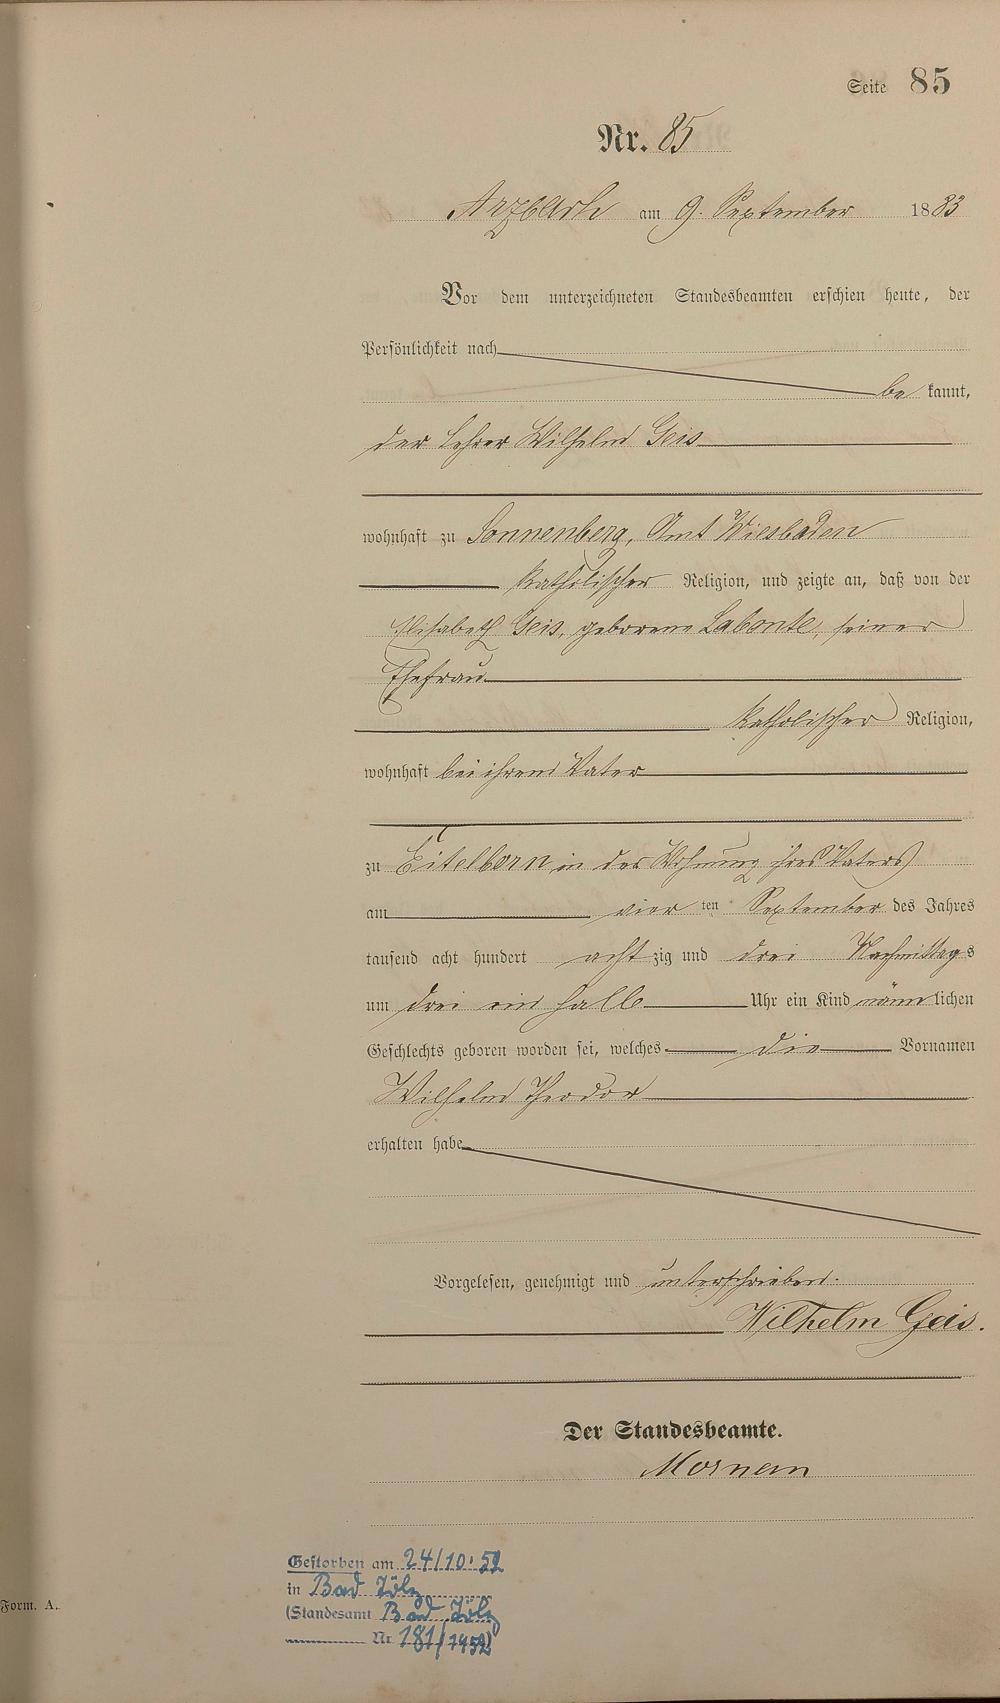 Seite 85
Nr. 85
Arzbach am 9. September 1883
Vor dem unterzeichneten Standesbeamten erschien heute, der
Persönlichkeit nach
be kannt,
der Lehrer Wilhelm Geis
wohnhaft zu Sonnenberg, Amt Wiesbaden
katholischer Religion, und zeigte an, daß von der
Elisabeth Geis, geborene Labonte, seiner
Ehefrau
katholischer Religion,
wohnhaft bei ihrem Vater
zu Eitelborn in der Wohnung ihres Vaters
am vier ten September des Jahres
tausend acht hundert acht zig und drei Nachmittags
um drei ein halb Uhr ein Kind männ lichen
Geschlechts geboren worden sei, welches die Vornamen
Wilhelm Theodor
erhalten habe
Vorgelesen, genehmigt und unterschrieben.
Wilhelm Geis.
Der Standesbeamte.
Gestorben am 24/10.52
in Bad Tölz
(Standesamt Bad Tölz
Nr. 181/1952)
Form. A.